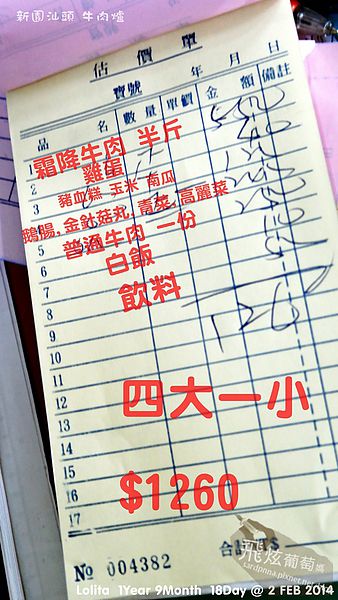 新園汕頭 牛肉爐
估價單
寶號 年 月 日
品 名 數量 單價 金 額 備註
1 霜降牛肉 半斤
2 雞蛋
3 豬血糕 玉米 南瓜
4 鵝腸,金針菇丸,青菜,高麗菜
5 普通牛肉 一份
6 白飯
7 飲料
8
9
10
11
12 四大一小
13
14
15
16 $1260
17
飛炫葡萄媽
sardpnna.pixnet.net
№ 004382 合計
Lolita 1Year 9Month 18Day @ 2 FEB 2014